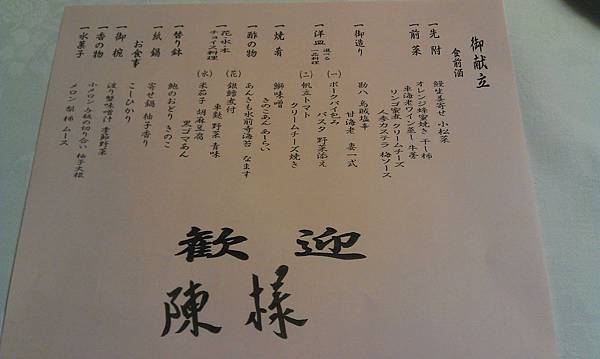 御献立
食前酒
一先附
鰹生姜寄せ 小松菜
一前菜
オレンジ蜂蜜焼き 干し柿
車海老ワイン蒸し 牛蒡
リンゴ蜜煮 クリームチーズ
人参カステラ 梅ソース
一御造り
勘八 烏賊塩辛
甘海老 妻一式
一洋皿 選べる一品料理
(一) ポークパイ包み
パスタ 野菜添え
(二) 帆立トマト
クリームチーズ焼き
一焼肴
鰤味噌
きのこあん あーらい
一酢の物
あんきも水前寺海苔 なます
一花水木
チョイス料理
(花) 銀鱈煮付
車麩 野菜 青味
(水) 米茄子 胡麻豆腐
黒ゴマあん
一替り鉢
鮑のおどり きのこ
一紙鍋
寄せ鍋 柚子香り
お食事
こしひかり
一御椀
渡り蟹味噌汁 季節野菜
一香の物
小メロン 白板の切り合い 柚子大根
一水菓子
メロン 梨 柿 ムース
歓迎
陳様